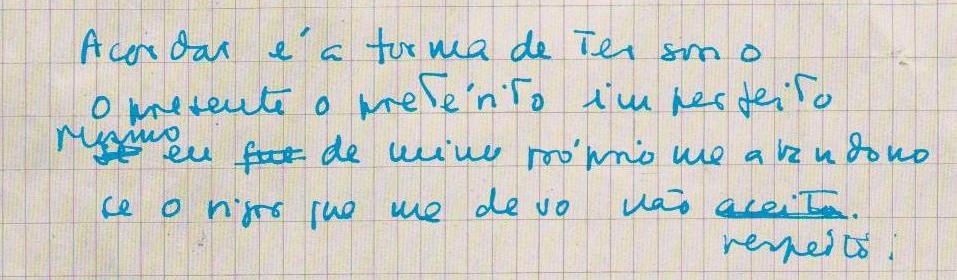 Acordar é a forma de ter sono
o presente o pretérito imperfeito
mesmo eu de mim próprio me abandono
se o rigor que me devo não aceito.
respeito.